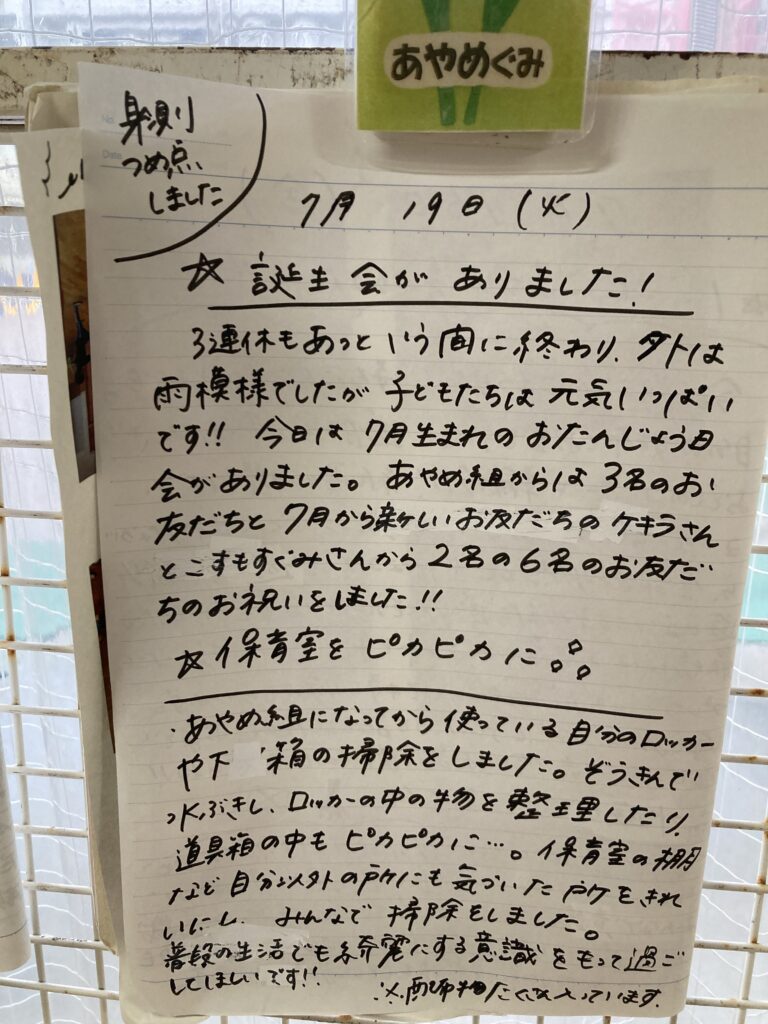 あやめぐみ
身測
つめ点
しました
7月 19日 (火)
☆ 誕生会が ありました!
3連休もあっという間に終わり、外は
雨模様でしたが 子どもたちは 元気いっぱい
です!! 今日は 7月生まれの おたんじょう日
会がありました。 あやめ組からは 3名のお
友だちと 7月から新しいお友だちの ケキラさん
とこすもすぐみさんから 2名の6名のお友だ
ちのお祝いをしました!!
☆ 保育室を ピカピカに
・あやめ組になってから 使っている 自分のロッカー
や下 箱の掃除をしました。ぞうきんで
水ぶきし、ロッカーの中の物を 整理したり、
道具箱の中も ピカピカに…。保育室の棚
など 自分以外の所にも 気づいた所をきれ
いにし、みんなで 掃除をしました。
普段の生活でも綺麗にする意識をもって過ご
してほしいです!!
※配布物たくさん入っています。